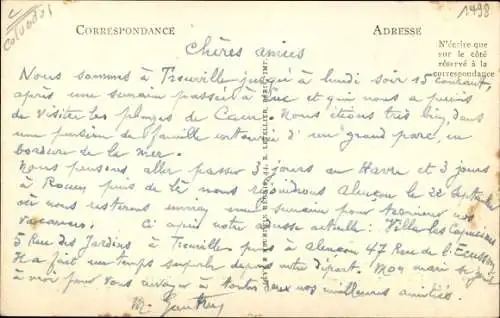 Calvados
1498
CORRESPONDANCE
ADRESSE
N'écrire que
sur le côté
réservé à la
correspondance
Chères amies
Nous sommes à Trouville jusqu'à lundi soir 15 courant,
après une semaine passée à Luc et qui nous a permis
de visiter les plages de Caen. Nous étions très bien, dans
une pension de famille entourée d'un grand parc, en
bordure de la mer.
Nous pensons aller passer jours au Havre et 3 jours
à Rouen puis de là nous rejoindrons Alençon le 22 Septembre
où nous resterons environ une semaine pour terminer nos
vacances. Ci après notre adresse actuelle : Villa les Capucines
5 Rue des Jardins à Trouville puis à Alençon 47 Rue de l'Ecusson
Il a fait un temps superbe depuis notre départ. Mon mari se joint
à moi pour vous envoyer à toutes deux nos meilleures amitiés.
M.